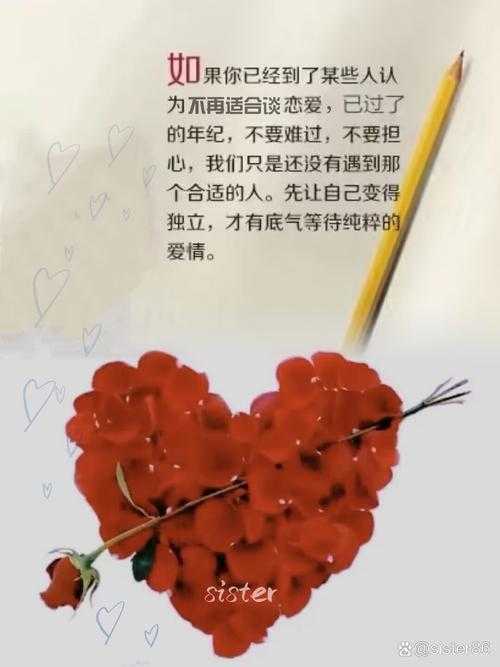 如果你已经到了某些人认
为不再适合谈恋爱，已过了
的年纪，不要难过，不要担
心，我们只是还没有遇到那
个合适的人。先让自己变得
独立，才有底气等待纯粹的
爱情。
sister
@sister86